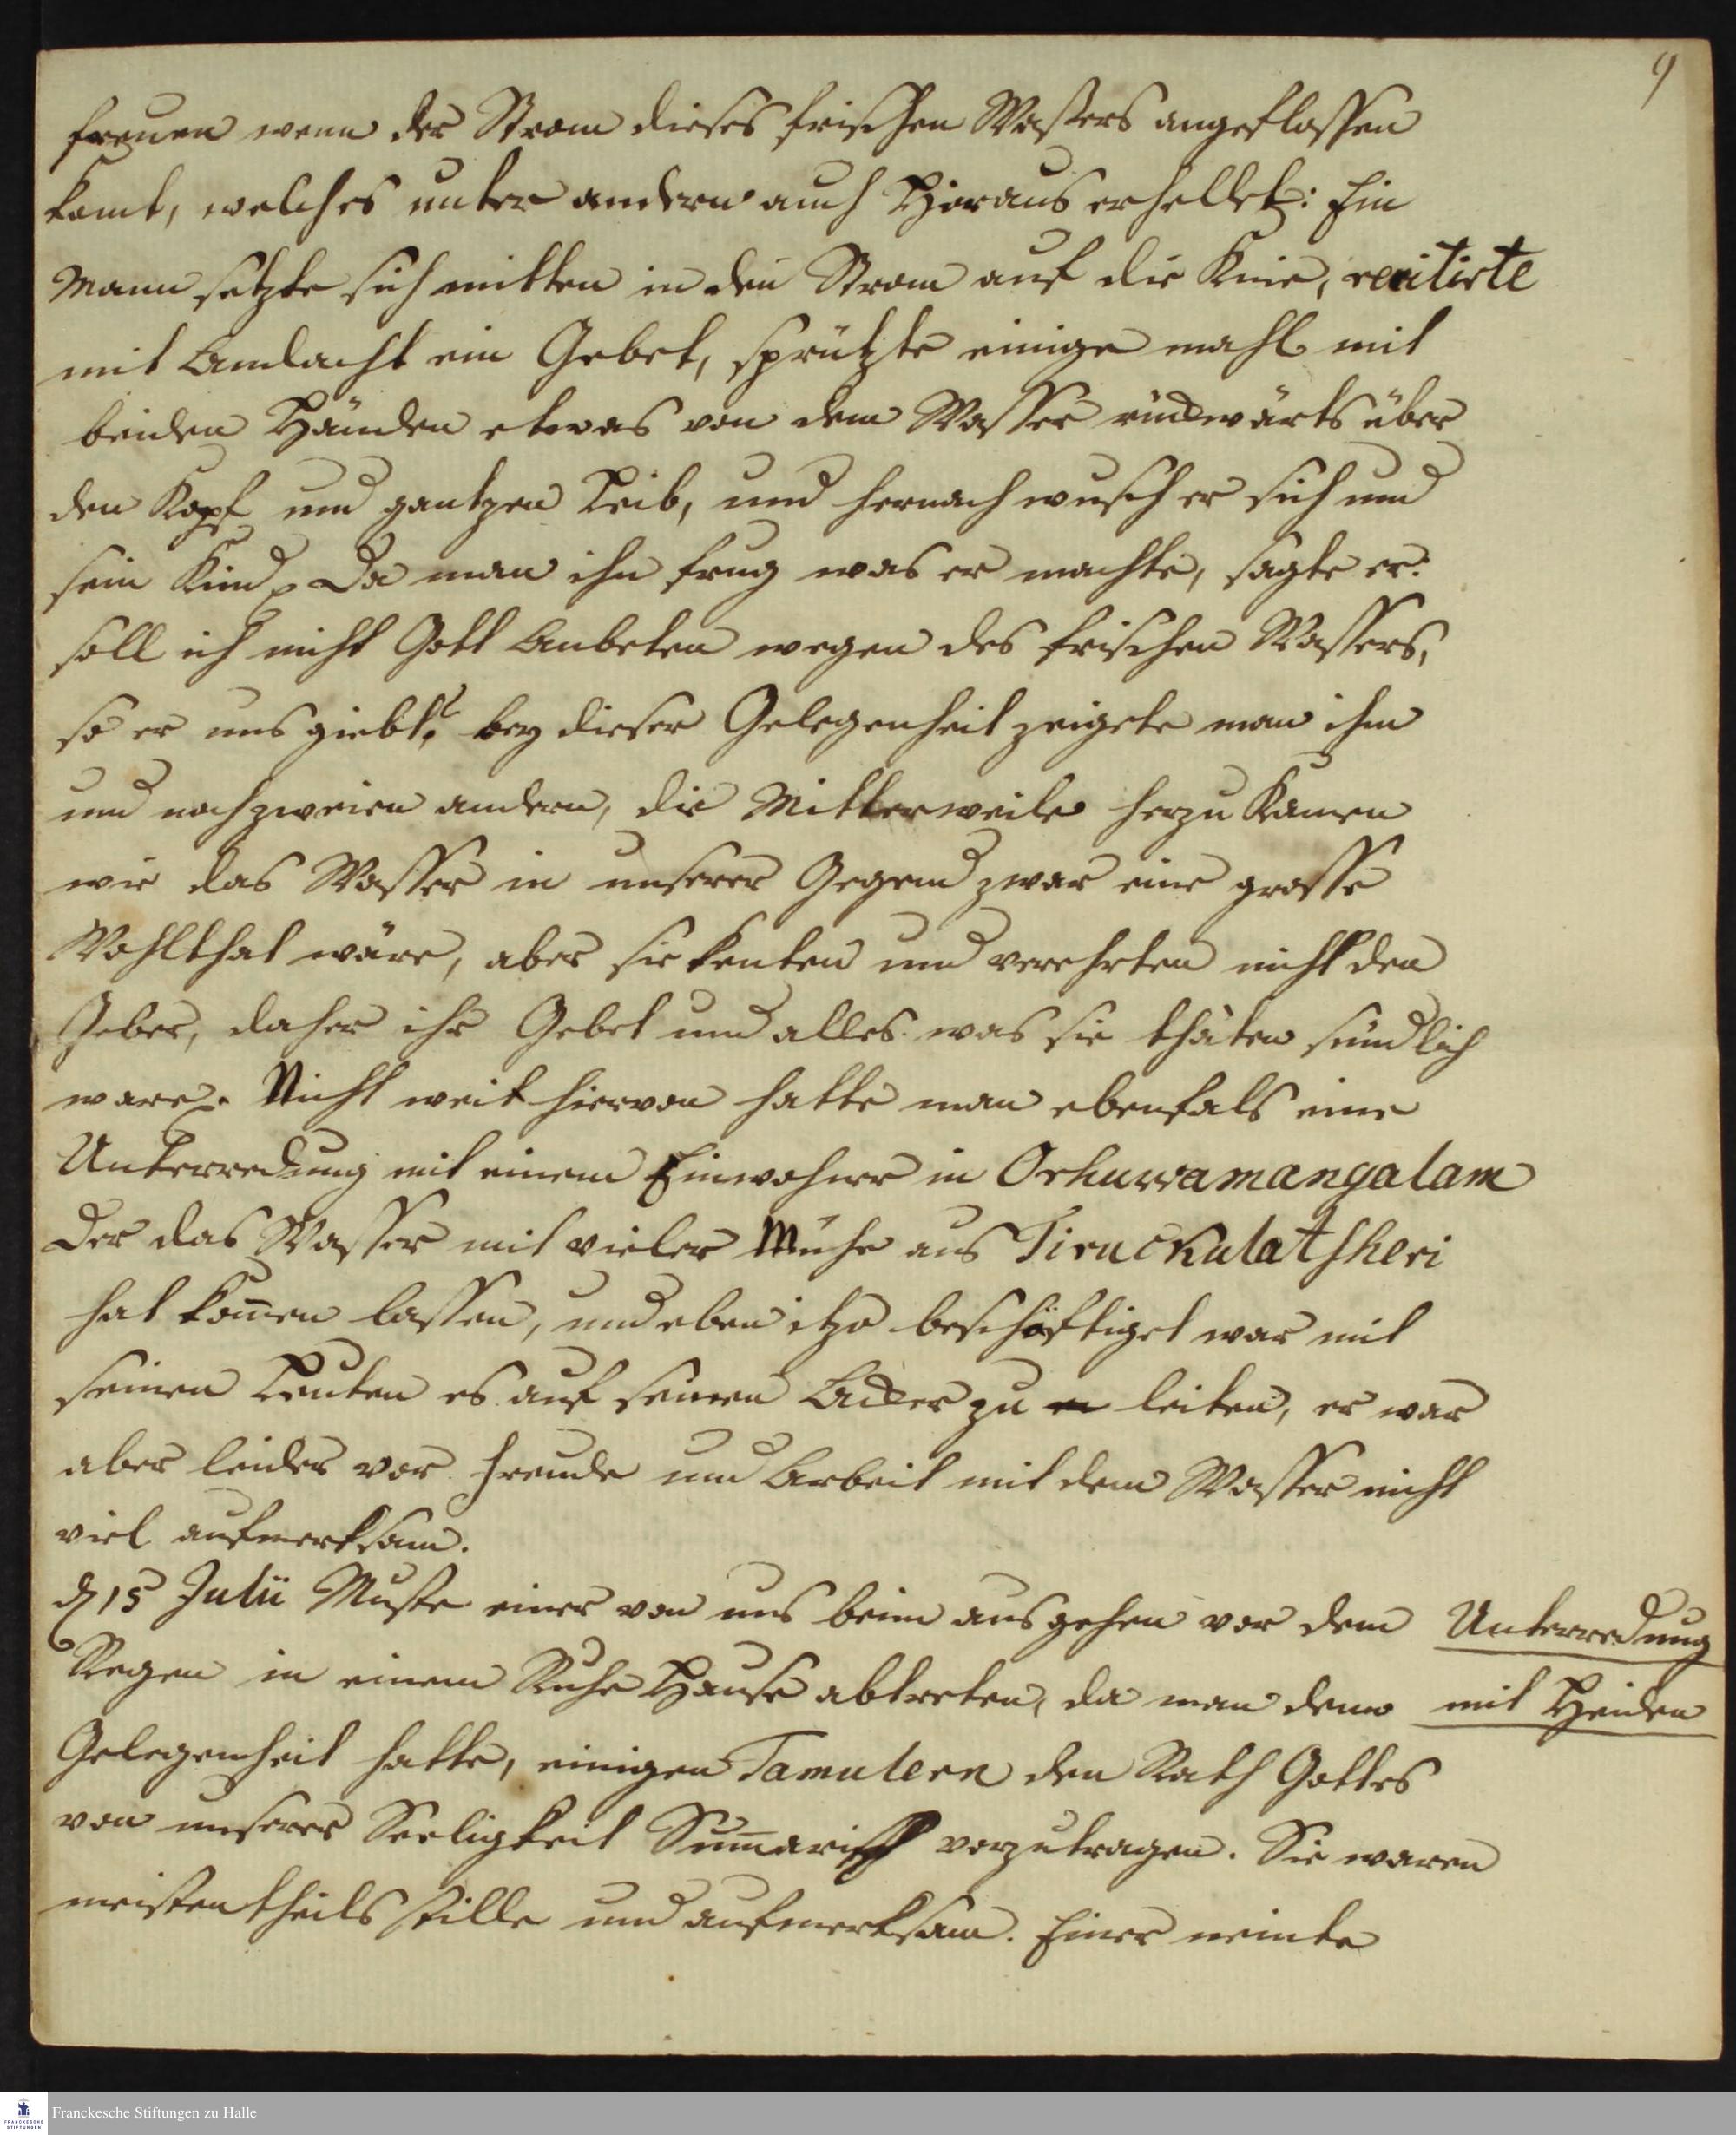 9
freuen wenn der Strom dieses frischen Waßers angeflossen
komt, welches unter andern auch Hieraus erhellet: Ein
Mann setzte sich mitten in den Strom auf die Knie, recitirte
mit Andacht ein Gebet, sprützte einige mahl mit
beiden Händen etwas von dem Wasser rückwärts über
den Kopf und gantzen Leib, und hernach wusch er sich und
sein Kind. Da man ihn frug was er machte, sagte er:
soll ich nicht Gott Anbeten wegen des frischen Wassers,
so er uns giebt? bey dieser Gelegenheit zeigete man ihm
und noch zweien andern, die Mitterweile herzu Kamen
wie das Wasser in unserer Gegend zwar eine grosse
Wohlthat wäre, aber sie kenten und verehrten nicht den
Geber, daher ihr Gebet und alles was sie thäten sündlich
ware. Nicht weit hiervon hatte man ebenfals eine
Unterredung mit einem Einwohner in Orhuwamangalam
Der das Wasser mit vieler Mühe aus Tiruckalatsheri
hat kom̄en lassen, und eben itzo beschäftiget war mit
seinen Leuten es auf seinen Acker zu leiten, er war
aber leider vor Freude und Arbeit mit dem Wasser nicht
viel aufmerksam.
d 15 Julii Muste einer von uns beim ausgehen vor dem
Regen in einem Ruhe Hause abtreten, da man denn
Gelegenheit hatte, einigen Tamulern den Rath Gottes
von unserer Seeligkeit Sum̄arisch vorzutragen. Sie waren
meistentheils stille und aufmerksam. Einer meinte
Unterredung
mit Heiden
Franckesche Stiftungen zu Halle